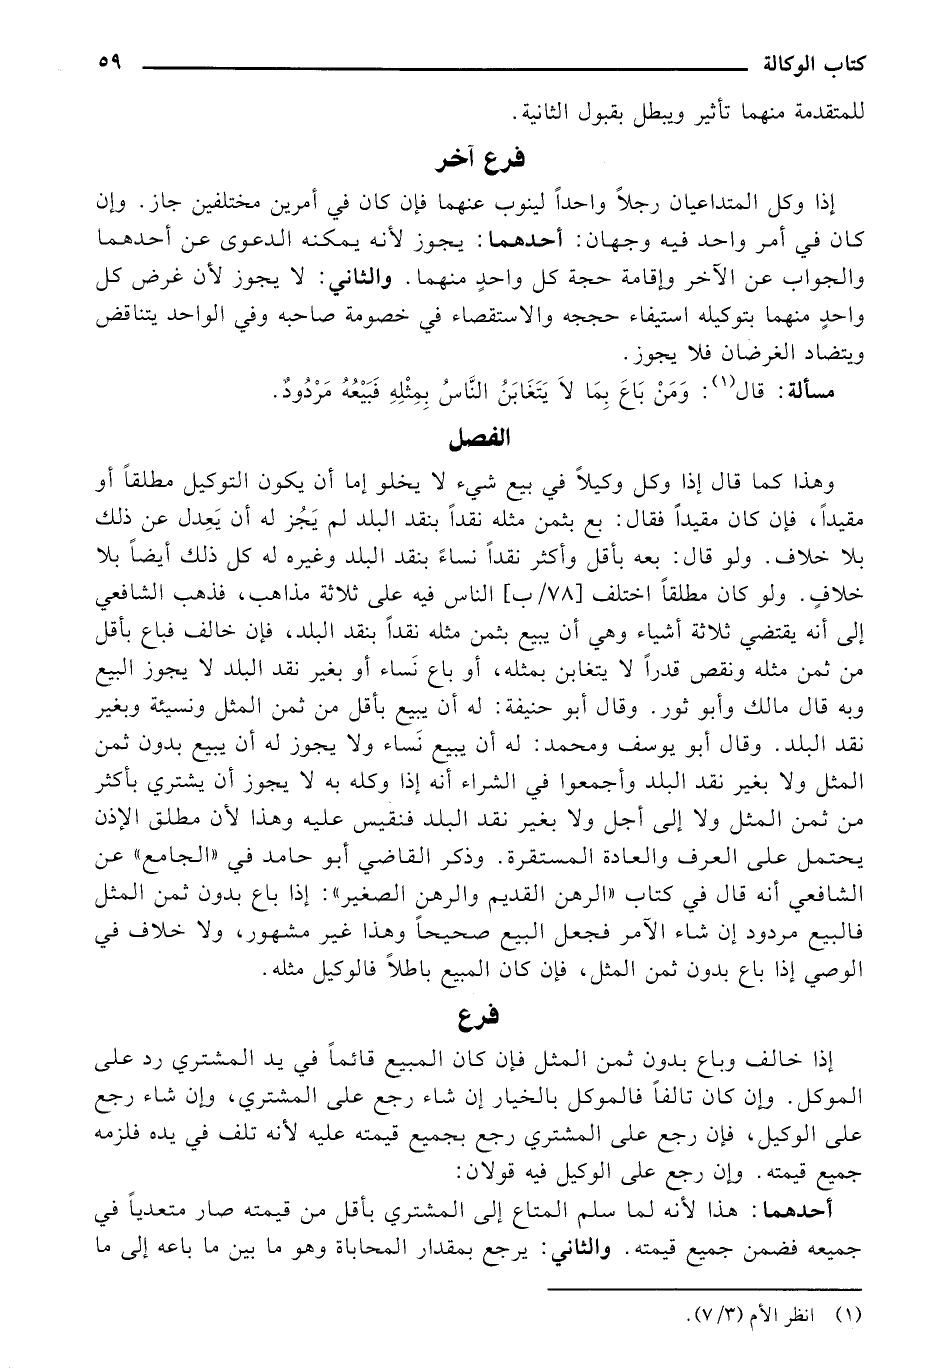 كتاب الوكالة ٥٩
للمتقدمة منهما تأثير ويبطل بقبول الثانية.
فرع آخر
إذا وكل المتداعيان رجلاً واحداً لينوب عنهما فإن كان في أمرين مختلفين جاز. وإن
كان في أمر واحد فيه وجهان: أحدهما: يجوز لأنه يمكنه الدعوى عن أحدهما
والجواب عن الآخر وإقامة حجة كل واحدٍ منهما. والثاني: لا يجوز لأن غرض كل
واحدٍ منهما بتوكيله استيفاء حججه والاستقصاء في خصومة صاحبه وفي الواحد يتناقض
ويتضاد الغرضان فلا يجوز.
مسألة: قال(١): وَمَنْ بَاعَ بِمَا لاَ يَتَغَابَنُ النَّاسُ بِمِثْلِهِ فَبَيْعُهُ مَرْدُودٌ.
الفصل
وهذا كما قال إذا وكل وكيلاً في بيع شيء لا يخلو إما أن يكون التوكيل مطلقاً أو
مقيداً، فإن كان مقيداً فقال: بع بثمن مثله نقداً بنقد البلد لم يَجُز له أن يَعِدل عن ذلك
بلا خلاف. ولو قال: بعه بأقل وأكثر نقداً نساءً بنقد البلد وغيره له كل ذلك أيضاً بلا
خلافٍ. ولو كان مطلقاً اختلف [٧٨/ ب] الناس فيه على ثلاثة مذاهب، فذهب الشافعي
إلى أنه يقتضي ثلاثة أشياء وهي أن يبيع بثمن مثله نقداً بنقد البلد، فإن خالف فباع بأقل
من ثمن مثله ونقص قدراً لا يتغابن بمثله، أو باع نَساء أو بغير نقد البلد لا يجوز البيع
وبه قال مالك وأبو ثور. وقال أبو حنيفة: له أن يبيع بأقل من ثمن المثل ونسيئة وبغير
نقد البلد. وقال أبو يوسف ومحمد: له أن يبيع نَساء ولا يجوز له أن يبيع بدون ثمن
المثل ولا بغير نقد البلد وأجمعوا في الشراء أنه إذا وكله به لا يجوز أن يشتري بأكثر
من ثمن المثل ولا إلى أجل ولا بغير نقد البلد فنقيس عليه وهذا لأن مطلق الإذن
يحتمل على العرف والعادة المستقرة. وذكر القاضي أبو حامد في «الجامع» عن
الشافعي أنه قال في كتاب «الرهن القديم والرهن الصغير»: إذا باع بدون ثمن المثل
فالبيع مردود إن شاء الآمر فجعل البيع صحيحاً وهذا غير مشهور، ولا خلاف في
الوصي إذا باع بدون ثمن المثل، فإن كان المبيع باطلاً فالوكيل مثله.
فرع
إذا خالف وباع بدون ثمن المثل فإن كان المبيع قائماً في يد المشتري رد على
الموكل. وإن كان تالفاً فالموكل بالخيار إن شاء رجع على المشتري، وإن شاء رجع
على الوكيل، فإن رجع على المشتري رجع بجميع قيمته عليه لأنه تلف في يده فلزمه
جميع قيمته. وإن رجع على الوكيل فيه قولان:
أحدهما: هذا لأنه لما سلم المتاع إلى المشتري بأقل من قيمته صار متعدياً في
جميعه فضمن جميع قيمته. والثاني: يرجع بمقدار المحاباة وهو ما بين ما باعه إلى ما
(١) انظر الأم (٧/٣).